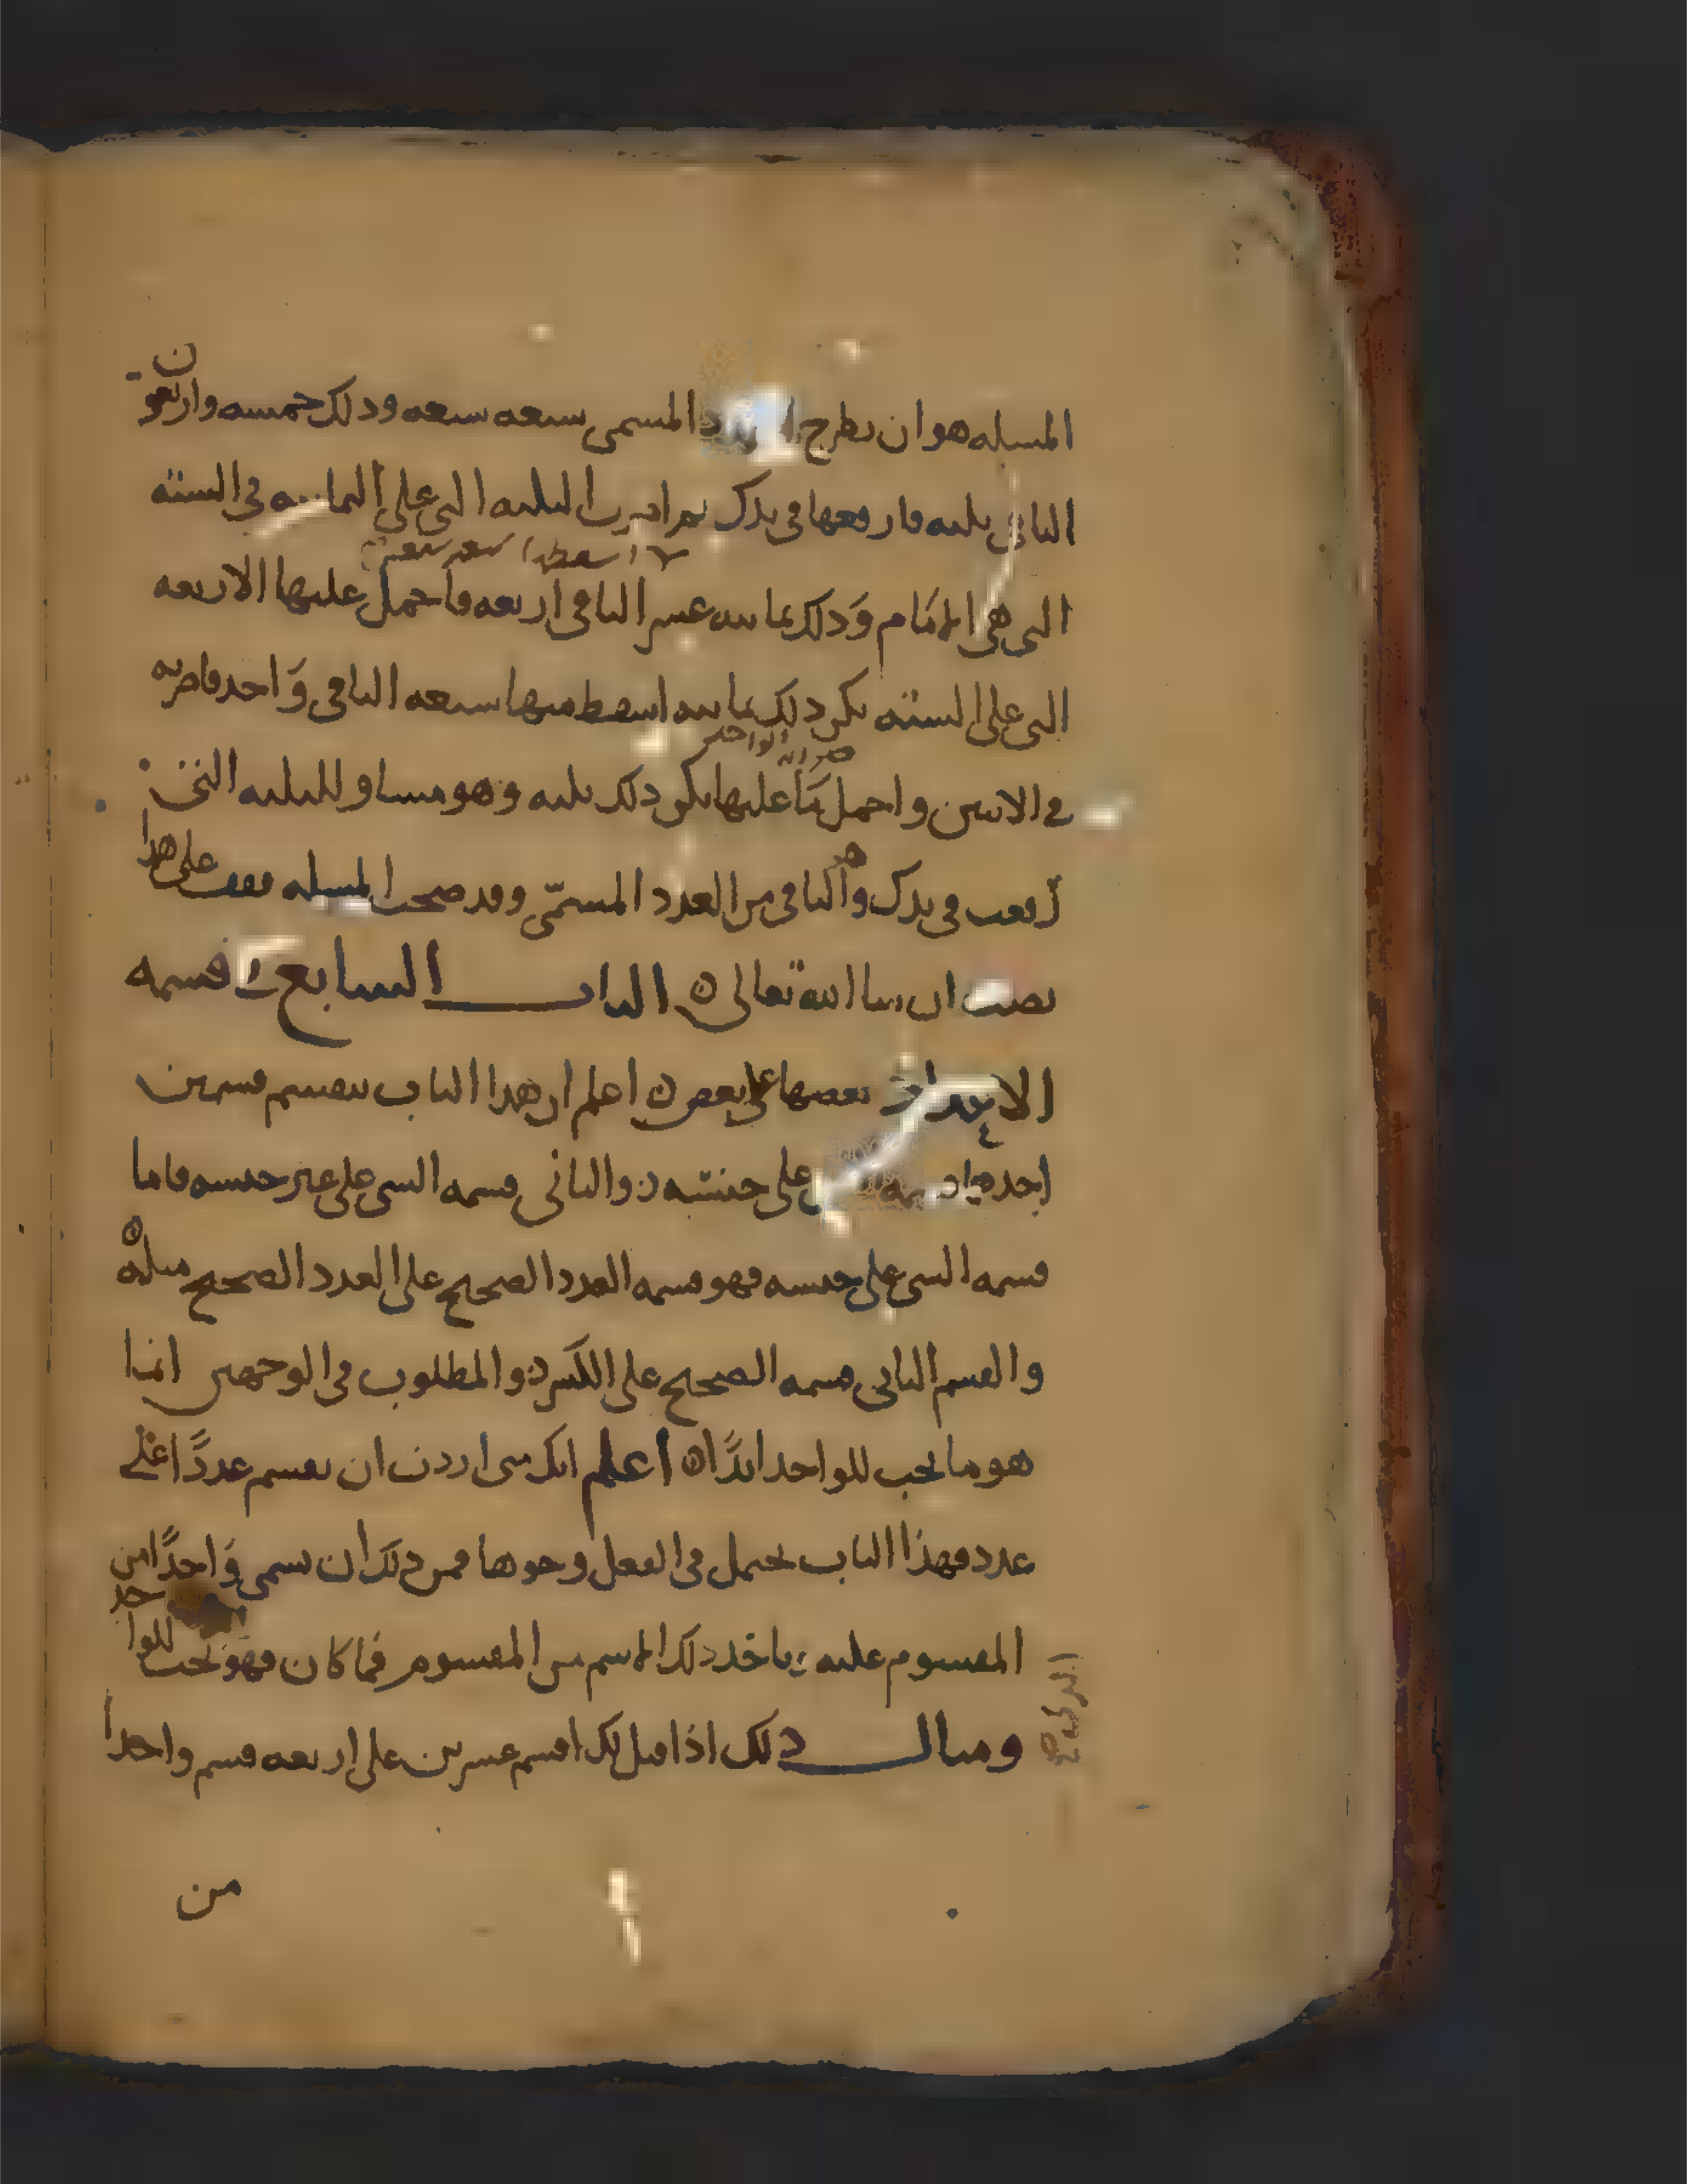 المسله هو ان نطرح المسمى سبعه سبعه وذلك خمسه واربعون
الباقى ثلثه فارفعها فى يدك ثم اضرب الثلثه التى على الثمانيه فى السته
التى هى الامام وذلك ثمانيه عشر الباقى اربعه فاحمل عليها الاربعه
اسقطها سبعه سبعه
التى على السته يكن ذلك ثمانيه اسقط منها سبعه الباقى واحد فاضربه
فى الاثنين واحمل عليها يكن ذلك ثلثه وهو مساو للثلثه التى
ضربت الواحد
رفعت فى يدك والباقى من العدد المسمّى وقد صحت المسله فقف على هذا
تصب ان شا الله تعالى ه الباب السابع فى قسمه
الاعداد بعضها على بعض ه اعلم ان هذا الباب ينقسم قسمين
احدهما قسمه على جنسه ن والثانى قسمه الشى على غير جنسه فاما
قسمه الشى على جنسه فهو قسمه العدد الصحيح على العدد الصحيح مثله ه
والقسم الثانى قسمه الصحيح على الكسر ن والمطلوب فى الوجهين انما
هو ما يجب للواحد ابدًا ه اعلم انك متى اردت ان تقسم عددًا على
عدد فهذا الباب يحتمل فى العمل وجوها فمن ذلك ان تسمى واحدًا من
المقسوم عليه وياخذ ذلك الاسم من المقسوم فما كان فهو يجب للواحد
ومثال ذلك اذا قيل لك اقسم عشرين على اربعه قسم واحدا
من